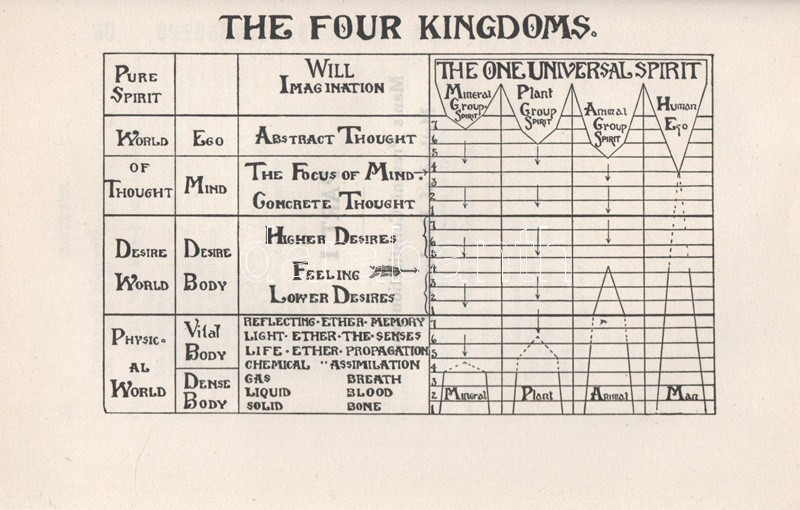 THE FOUR KINGDOMS.
PURE SPIRIT
WILL
IMAGINATION
THE ONE UNIVERSAL SPIRIT
Mineral Group Spirit
Plant Group Spirit
Animal Group Spirit
Human Ego
WORLD OF THOUGHT
EGO
ABSTRACT THOUGHT
MIND
THE FOCUS OF MIND
CONCRETE THOUGHT
7
6
5
4
3
2
1
DESIRE WORLD
DESIRE BODY
HIGHER DESIRES
FEELING
LOWER DESIRES
7
6
5
4
3
2
1
PHYSIC-AL WORLD
Vital BODY
REFLECTING·ETHER·MEMORY
LIGHT·ETHER·THE·SENSES
LIFE·ETHER·PROPAGATION
CHEMICAL " ASSIMILATION
DENSE BODY
GAS BREATH
LIQUID BLOOD
SOLID BONE
7
6
5
4
3
2
1
Mineral
Plant
Animal
Man